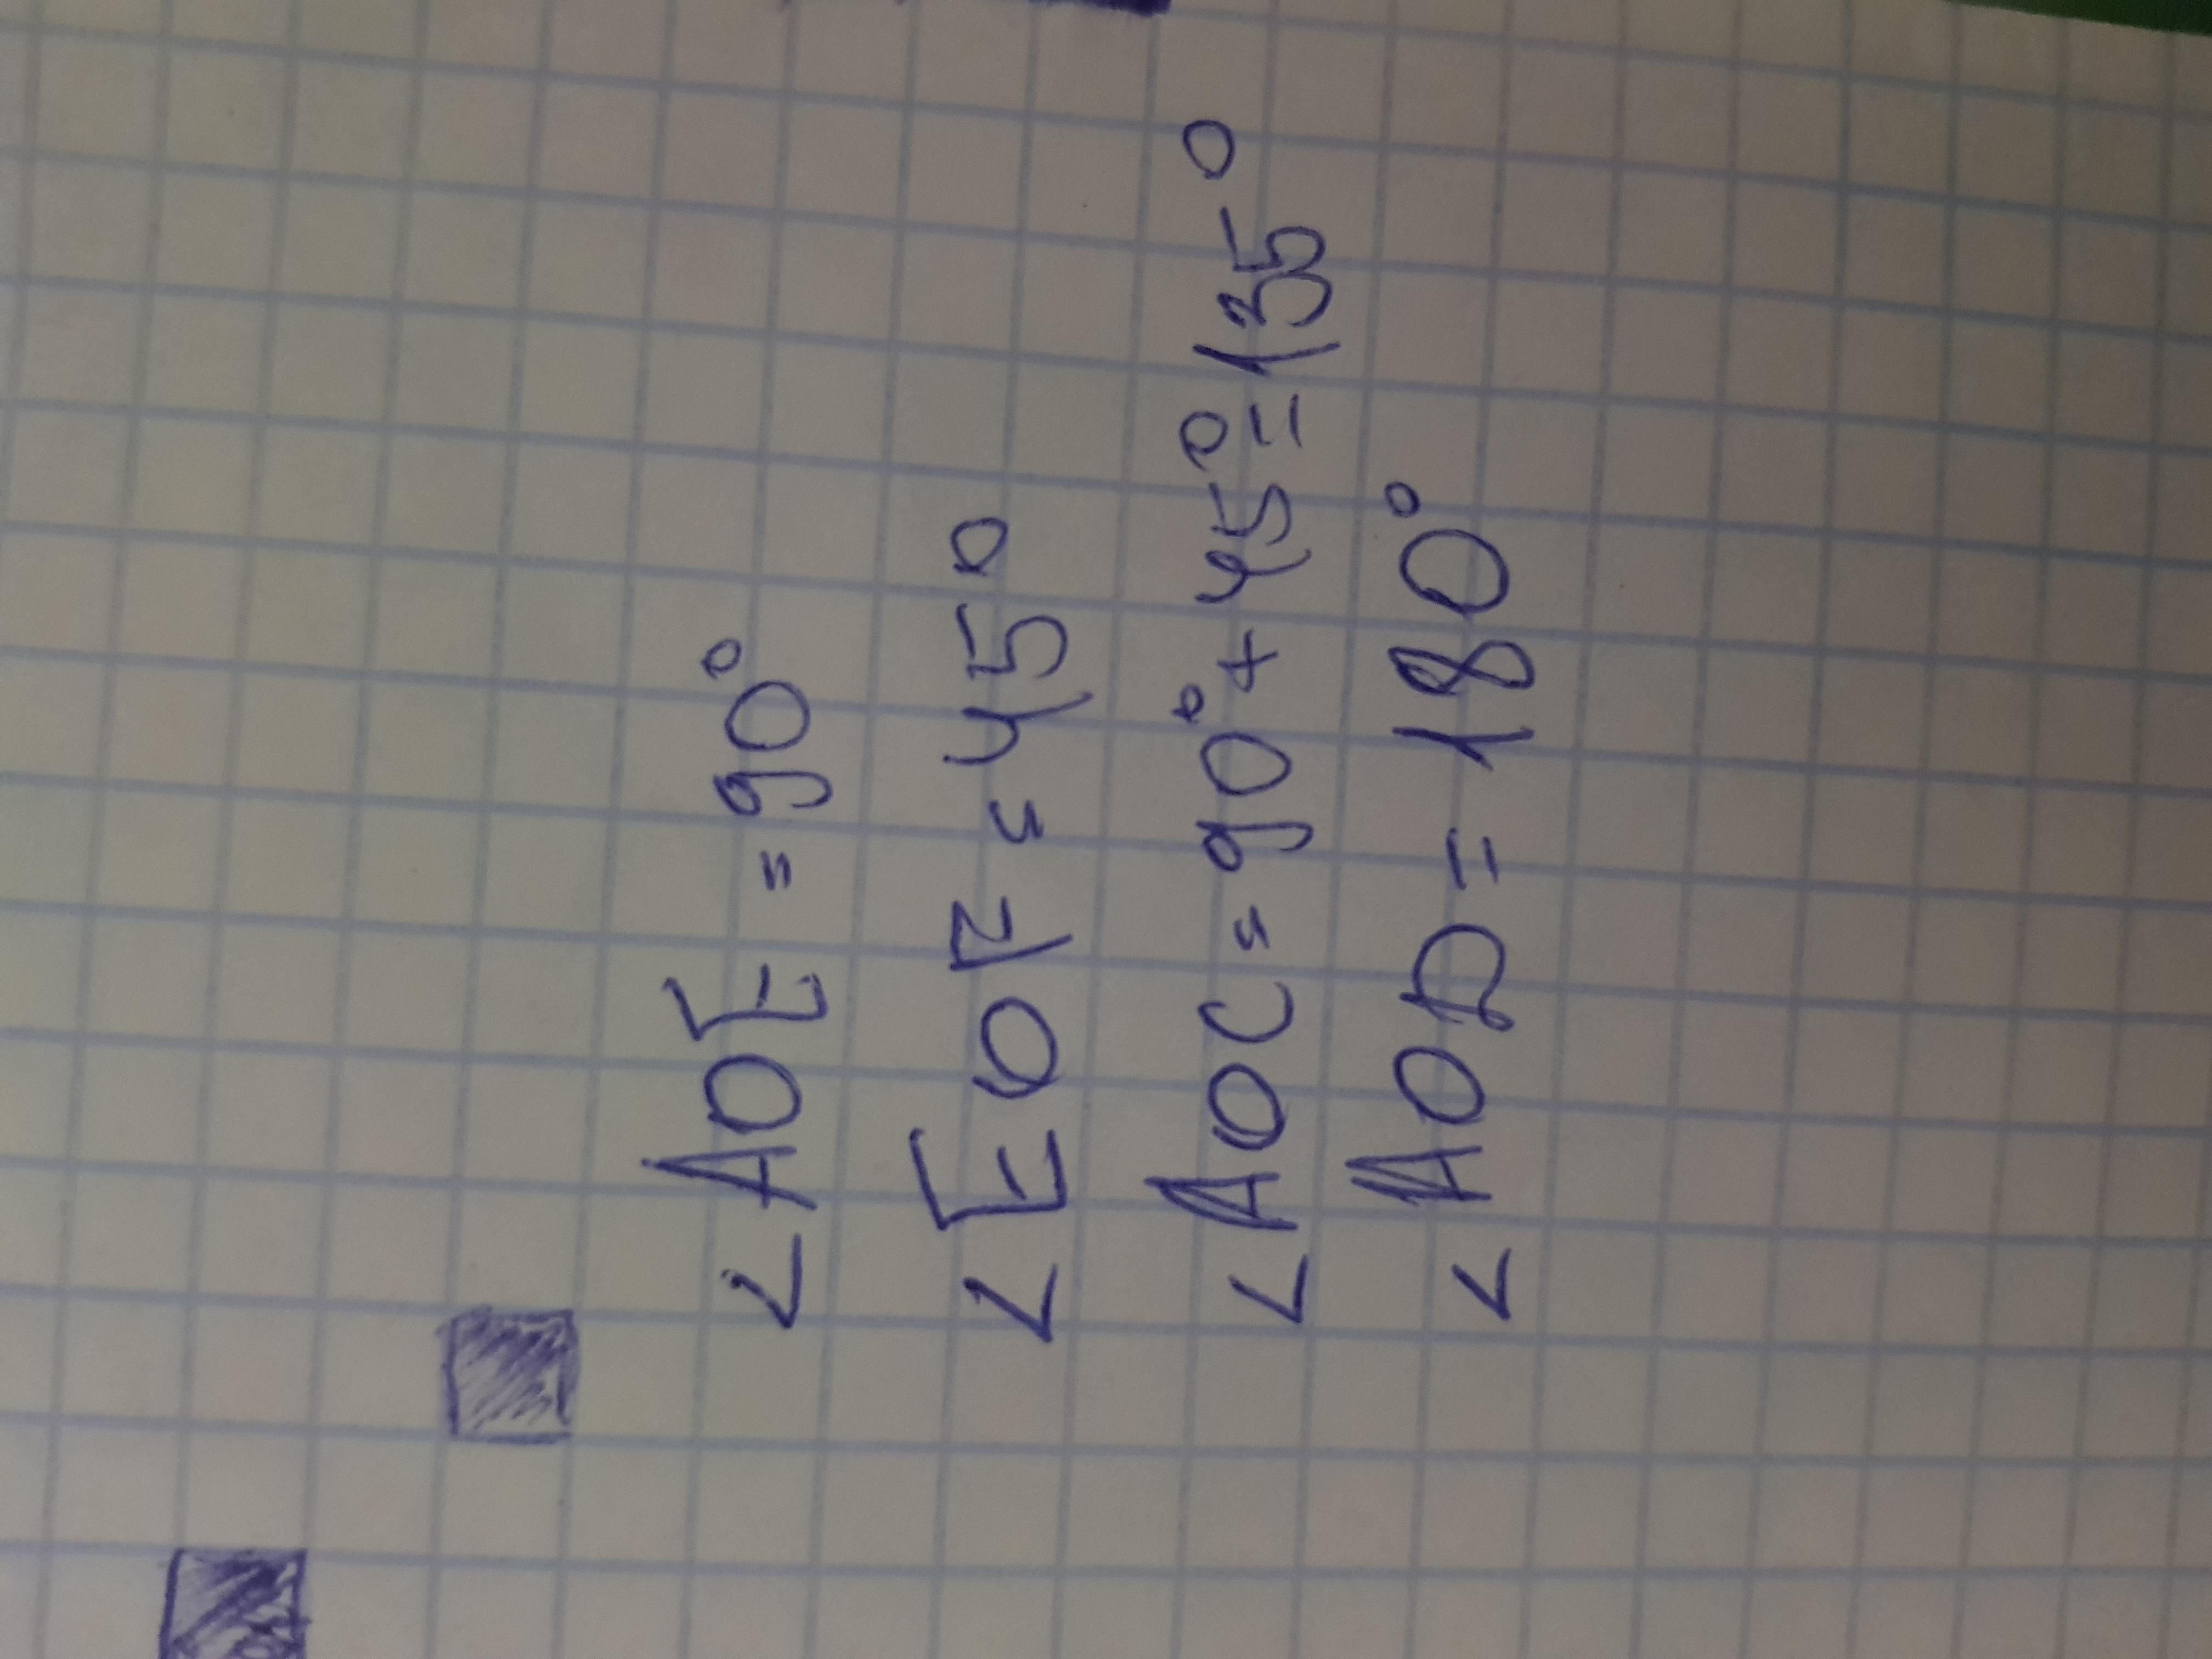 ∠AOE = 90°
∠EOF = 45°
∠AOC = 90° + 45° = 135°
∠AOD = 180°